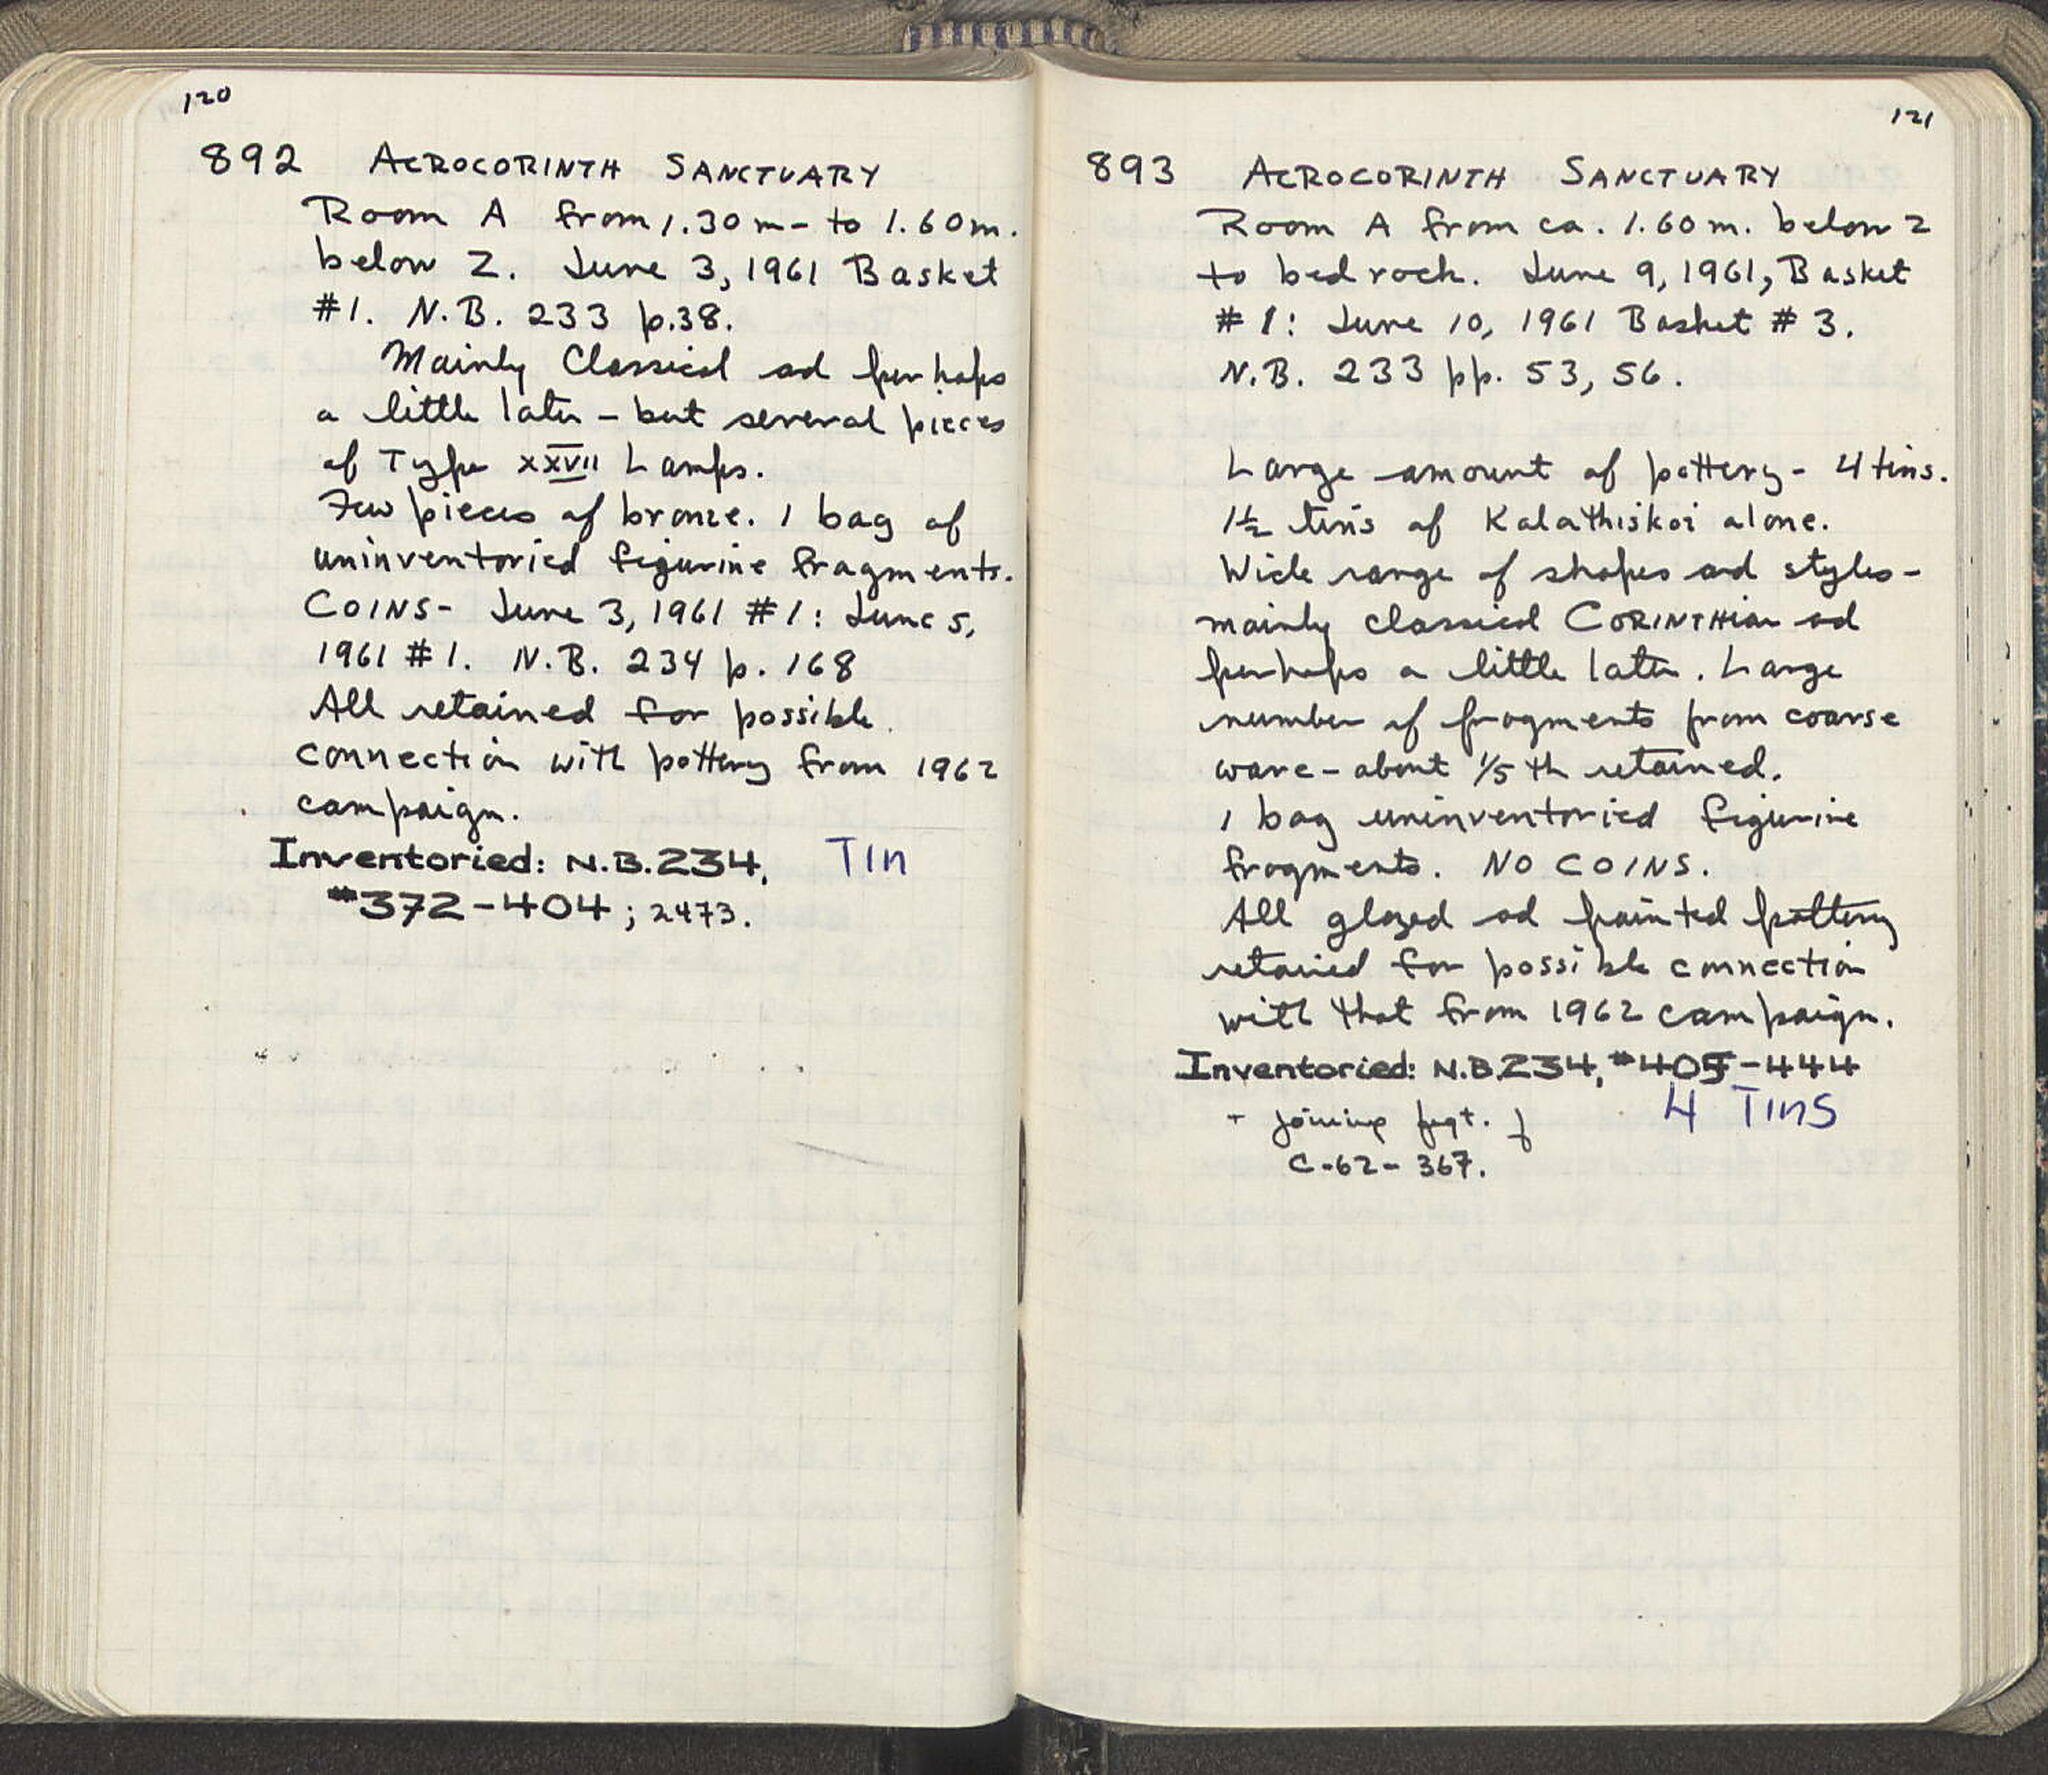 120
892 ACROCORINTH SANCTUARY
Room A from 1.30 m- to 1.60 m.
below Z. June 3, 1961 Basket
#1. N.B. 233 p.38.
Mainly Classical ad perhaps
a little later - but several pieces
of Type XXVII Lamps.
Few pieces of bronze. 1 bag of
uninventoried figurine fragments.
COINS- June 3, 1961 #1: June 5,
1961 #1. N.B. 234 p. 168
All retained for possible
connection with pottery from 1962
campaign.
Inventoried: N.B.234, TIn
#372-404; 2473.
121
893 ACROCORINTH SANCTUARY
Room A from ca. 1.60 m. below Z
to bedrock. June 9, 1961, Basket
# 1: June 10, 1961 Basket # 3.
N.B. 233 pp. 53, 56.
Large amount of pottery - 4 tins.
1½ tins of Kalathiskoi alone.
Wide range of shapes ad styles -
mainly classical CORINTHian ad
perhaps a little later. Large
number of fragments from coarse
ware - about 1/5 th retained.
1 bag uninventoried figurine
fragments. NO COINS.
All glazed ad painted pottery
retained for possible connection
with that from 1962 campaign.
Inventoried: N.B.234, #405-444
+ joining fragt. of 4 TInS
C-62-367.